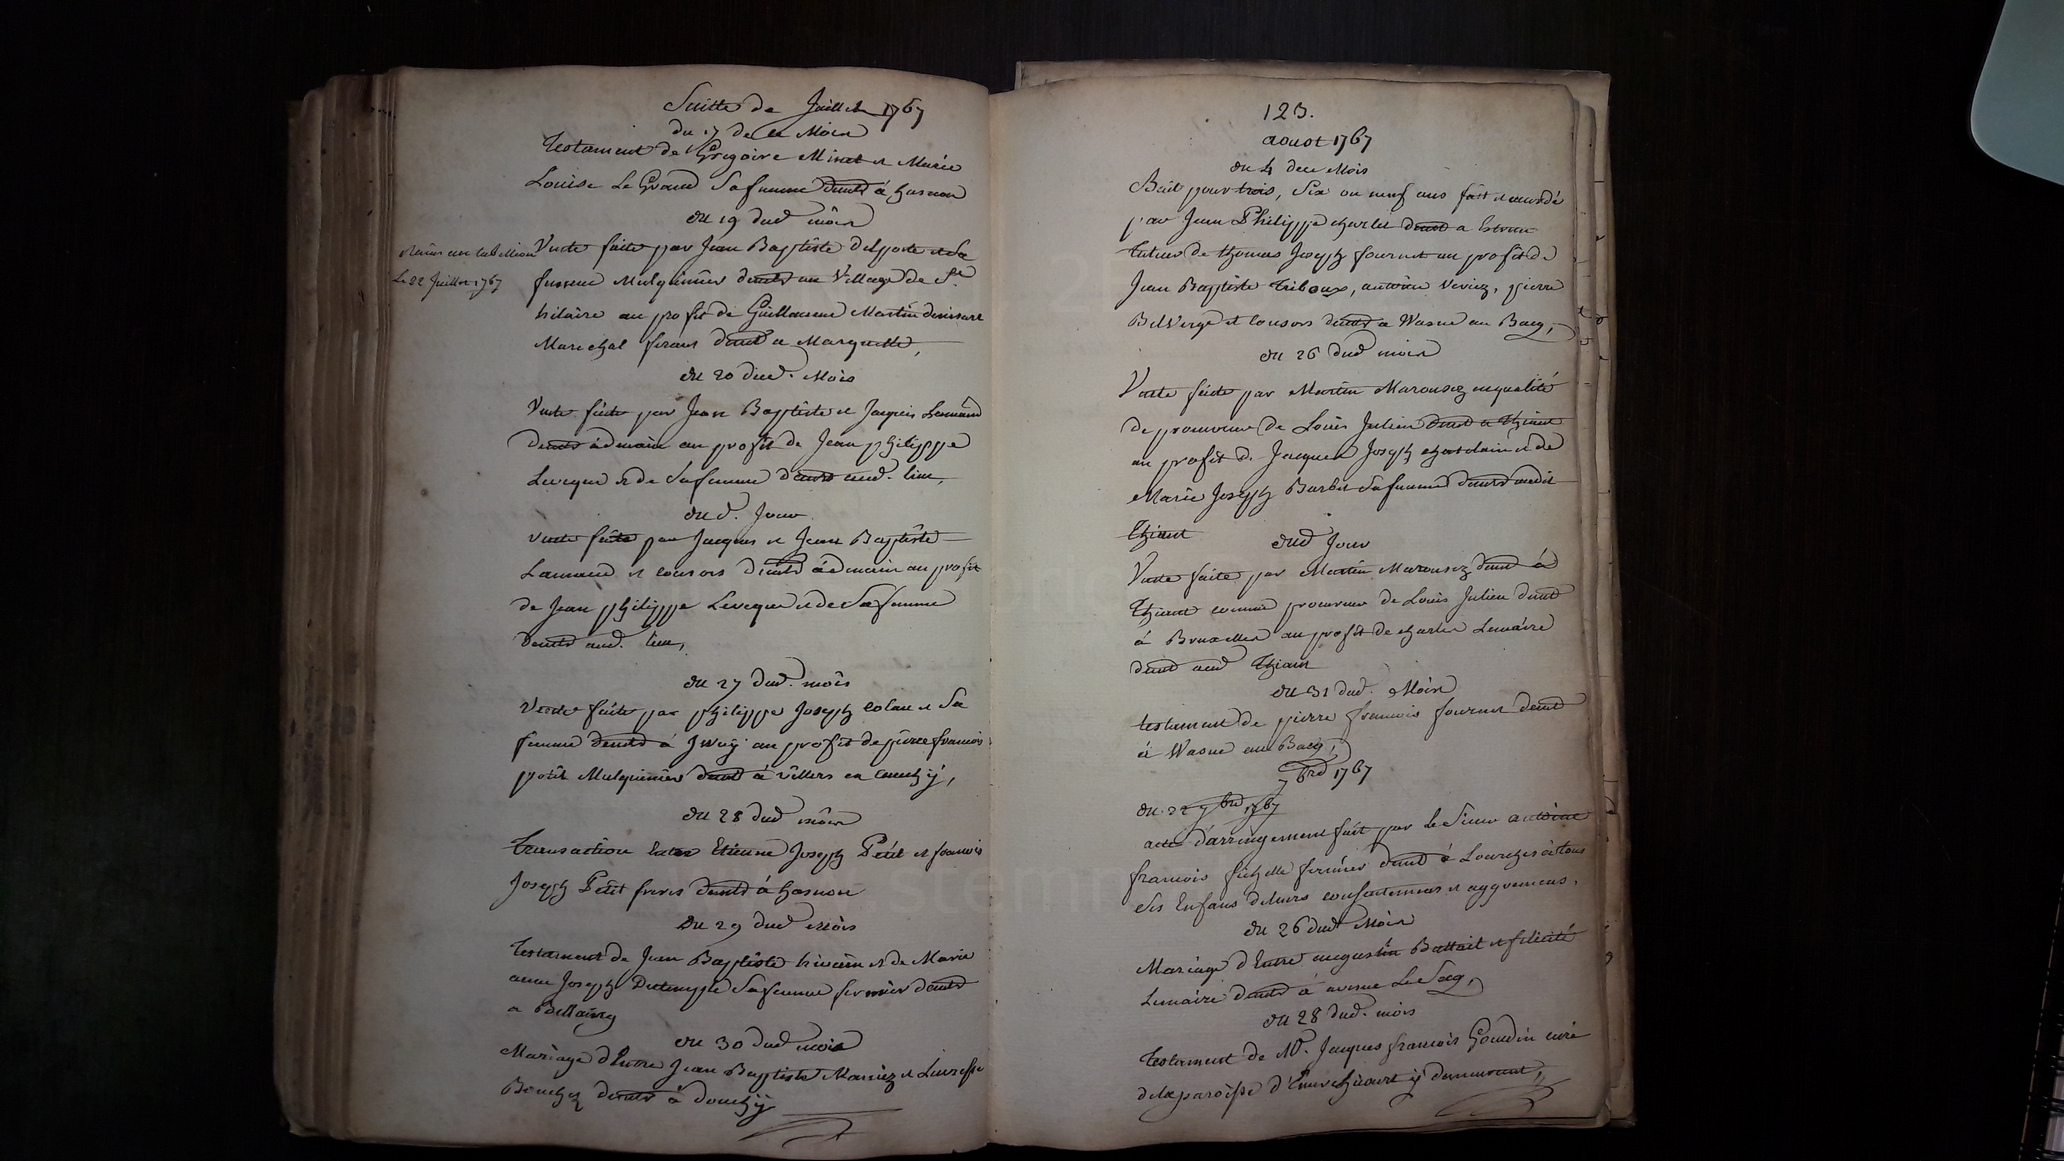 Suitte de Juillet 1767
du 17 de ce Mois
Testament de Gregoire Minet et Marie
Louise Le Grand Sa femme demts à hasnon
du 19 dud mois
Vente faite par Jean Baptiste delporte et Sa
Le 22 Juillet 1767
femme Mulquinier demts au Village de St
hilaire au profit de Guillaume Martin
Marechal ferant demt a Marquette,
du 20 dud. Mois
Vente faite par Jean Baptiste et Jacques Lamand
demts à demain au profit de Jean philippe
Leveque et de Sa femme demts aud. lieu,
dud. Jour
vente faite par Jacques et Jean Baptiste
Lamand et consors demts à demain au profit
de Jean philippe Leveque et de Sa femme
demts aud. lieu,
du 27 dud. mois
Vente faite par philippe Joseph Colau et Sa
femme demts à Jwuÿ au profit de pierre francois
petit Mulquinier demt à villers en Cauchÿ,
du 28 dud mois
Transaction Entre Etienne Joseph Petit et francois
Joseph Petit freres demts à hasnon
du 29 dud Mois
Testament de Jean Baptiste et de Marie
anne Joseph Dutemple Sa femme fermier demts
a Bellaing
du 30 dud mois
Mariage d'Entre Jean Baptiste Marriez et
Bouchez demts à douchÿ
123.
aoust 1767
du 4 de ce Mois
Bail pour trois, Six ou neuf ans fait et accordé
par Jean Philippe Charlet demt a
tuteur de thomas Joseph fournet au profit de
Jean Baptiste Triboux, antoine Veviez, pierre
Belverge et consors demts a Wasne au Bacq,
du 26 dud mois
Vente faite par Martin Marousez en qualité
de procureur de Louis Julien demt a Thiant
au profit de Jacques Joseph Chatelain et de
Marie Joseph Barbet Sa femme demts audit
Thiant
dud Jour
Vente faite par Martin Marousez demt à
Thiant comme procureur de Louis Julien demt
à Bruxelles au profit de Charles Lemaire
demt aud Thiant
du 31 dud. Mois
testament de pierre francois fournet demt
à Wasne au Bacq,
7bre 1767
du 22 7bre 1767
acte d'arrangement fait par le Sieur antoine
francois fermier demt à Lourches à tous
Ses Enfans de leurs consentemens et aggremens,
du 26 dud Mois
Mariage d'Entre augustin Battait et felicité
Lemaire demts à avesne Le Secq,
du 28 dud. mois
Testament de Mr. Jacques francois Gourdin curé
de la paroisse d'Emerchicourt ÿ demeurant,